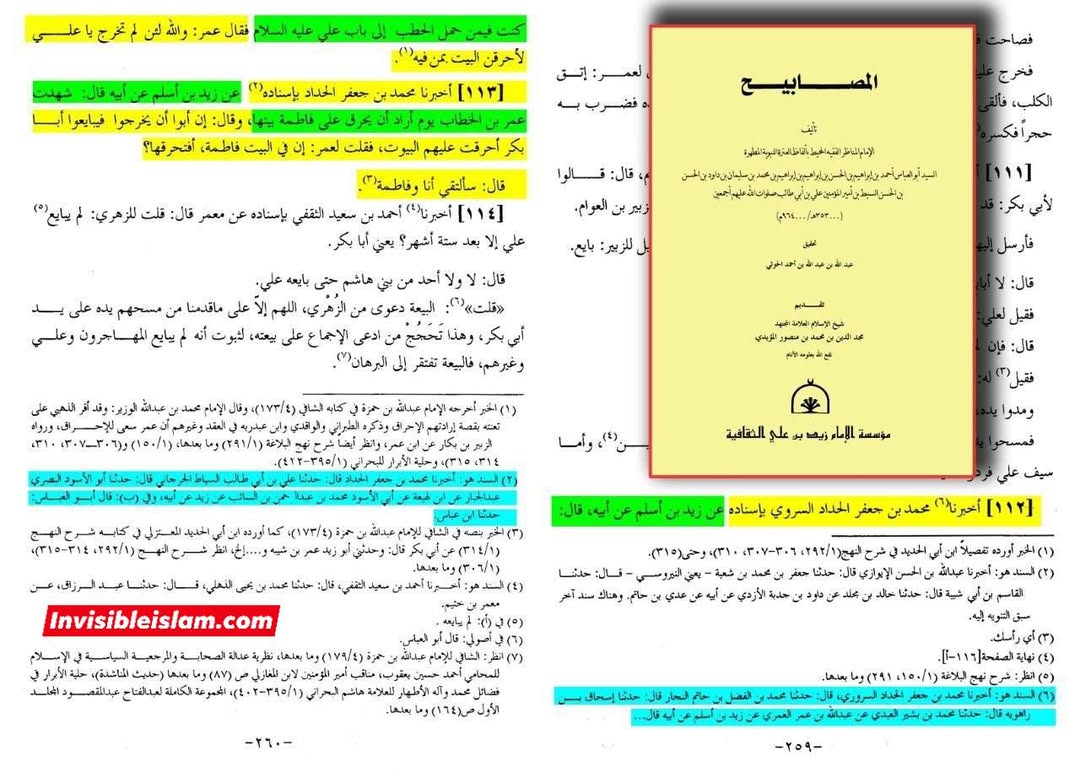 فصاحت
فخرج علي
لعمر: إتق
الكلب، فألقى
ه فضرب به
حجراً فكسره
[١١١]
م، قال: قالوا
لأبي بكر: قد
زبير بن العوام.
فأرسل إليه
يل للزبير: بايع.
قال: لا أبا
فقيل لعلي:
قال: فإن لم
فقيل(٣) له:
ومدوا يده،
فمسحوا يد
ين(٤)، وأما
سيف علي فرد
المصابيح
تأليف
الإمام المناظر الفقيه المحيط بألفاظ العترة النبوية المطهرة
السيد أبو العباس أحمد بن إبراهيم بن الحسن بن إبراهيم بن إبراهيم بن محمد بن سليمان بن داود بن الحسن
بن الحسن السبط بن أمير المؤمنين علي بن أبي طالب صلوات الله عليهم أجمعين
(...-٣٥٣هـ/...-٩٦٤م)
تحقيق
عبد الله بن عبد الله بن أحمد الحوثي
تقديم
شيخ الإسلام العلامة المجتهد
مجد الدين بن محمد بن منصور المؤيدي
نفع الله بعلومه الأنام
مؤسسة الإمام زيد بن علي الثقافية
[١١٢] أخبرنا(٦) محمد بن جعفر الحداد السروي بإسناده عن زيد بن أسلم عن أبيه، قال:
(١) الخبر أورده تفصيلاً ابن أبي الحديد في شرح النهج(٢٩٢/١، ٣٠٦-٣٠٧، ٣١٠)، وحتى(٣١٥).
(٢) السند هو: أخبرنا عبدالله بن الحسن الإيوازي قال: حدثنا جعفر بن محمد بن شعبة – يعني النيروسي – قال: حدثنا
القاسم بن أبي شيبة قال: حدثنا خالد بن مخلد عن داود بن جدبة الأزدي عن أبيه عن عدي بن حاتم. وهناك سند آخر
سبق التنويه إليه.
(٣) أي رأسك.
(٤) نهاية الصفحة[١١٦-أ].
(٥) انظر: شرح نهج البلاغة (١٥٠/١، ٢٩١) وما بعدها.
(٦) السند هو: أخبرنا محمد بن جعفر الحداد السروري، قال: حدثنا محمد بن الفضل بن حاتم النجار قال: حدثنا إسحاق بن
راهويه قال: حدثنا محمد بن بشير العبدي عن عبدالله بن عمر العمري عن زيد بن أسلم عن أبيه قال...
-٢٥٩-
كنت فيمن حمل الحطب إلى باب علي عليه السلام فقال عمر: والله لئن لم تخرج يا علي
لأحرقن البيت بمن فيه(١).
[١١٣] أخبرنا محمد بن جعفر الحداد بإسناده(٢) عن زيد بن أسلم عن أبيه قال: شهدت
عمر بن الخطاب يوم أراد أن يحرق على فاطمة بيتها، وقال: إن أبوا أن يخرجوا فيبايعوا أبا
بكر أحرقت عليهم البيوت، فقلت لعمر: إن في البيت فاطمة، أفتحرقها؟
قال: سألتقي أنا وفاطمة(٣).
[١١٤] أخبرنا(٤) أحمد بن سعيد الثقفي بإسناده عن معمر قال: قلت للزهري: لم يبايع(٥)
علي إلا بعد ستة أشهر؟ يعني أبا بكر.
قال: لا ولا أحد من بني هاشم حتى بايعه علي.
«قلت»(٦): البيعة دعوى من الزُهْري، اللهم إلاّ على ماقدمنا من مسحهم يده على يد
أبي بكر، وهذا تَحَجُجٌ من ادعى الإجماع على بيعته، لثبوت أنه لم يبايع المهاجرون وعلي
وغيرهم، فالبيعة تفتقر إلى البرهان(٧).
(١) الخبر أخرجه الإمام عبدالله بن حمزة في كتابه الشافي (١٧٣/٤)، وقال الإمام محمد بن عبدالله الوزير: وقد أقر الذهبي على
تعنته بقصة إرادتهم الإحراق وذكره الطبراني والواقدي وابن عبدربه في العقد وغيرهم أن عمر سعى للإحراق، ورواه
الزبير بن بكار عن ابن عمر، وانظر أيضاً شرح نهج البلاغة (٢٩١/١) وما بعدها، (١٥٠/١) و(٣٠٦-٣٠٧، ٣١٠،
٣١٤، ٣١٥)، وحلية الأبرار للبحراني (٣٩٥/١-٤٢٢).
(٢) السند هو: أخبرنا محمد بن جعفر الحداد قال: حدثنا علي بن أبي طالب السياط الجرجاني قال: حدثنا أبو الأسود البصري
عبدالجبار عن ابن لهيعة عن أبي الأسود محمد بن عبدا حمن بن السائب عن زيد عن أبيه، وفي (ب): قال أبو العباس:
حدثنا ابن عباس.
(٣) الخبر بنصه في الشافي للإمام عبدالله بن حمزة (١٧٣/٤)، كما أورده ابن أبي الحديد المعتزلي في كتابه شرح النهج
(٣١٤/١) عن أبي بكر قال: وحدثني أبو زيد عمر بن شبيه و....إلخ، انظر شرح النهج (٢٩٢/١، ٣١٤-٣١٥)،
(٣٠٦/١) وما بعدها.
(٤) السند هو: أخبرنا أحمد بن سعيد الثقفي، قال: حدثنا محمد بن يحيى الذهلي، قال: حدثنا عبد الرزاق، عن
معمر بن خثيم.
(٥) في (أ): لم يبايعه .
(٦) في أصولي: قال أبو العباس.
(٧) انظر: الشافي للإمام عبدالله بن حمزة (١٧٩/٤) وما بعدها، نظرية عدالة الصحابة والمرجعية السياسية في الإسلام
للمحامي أحمد حسين يعقوب، مناقب أمير المؤمنين لابن المغازلي ص (٨٧) وما بعدها (حديث المناشدة)، حلية الأبرار في
فضائل محمد وآله الأطهار للعلامة هاشم البحراني (٣٩٥/١-٤٠٢)، المجموعة الكاملة لعبدالفتاح عبدالمقصود المجلد
الأول ص(١٦٤) وما بعدها.
-٢٦٠-
Invisibleislam.com